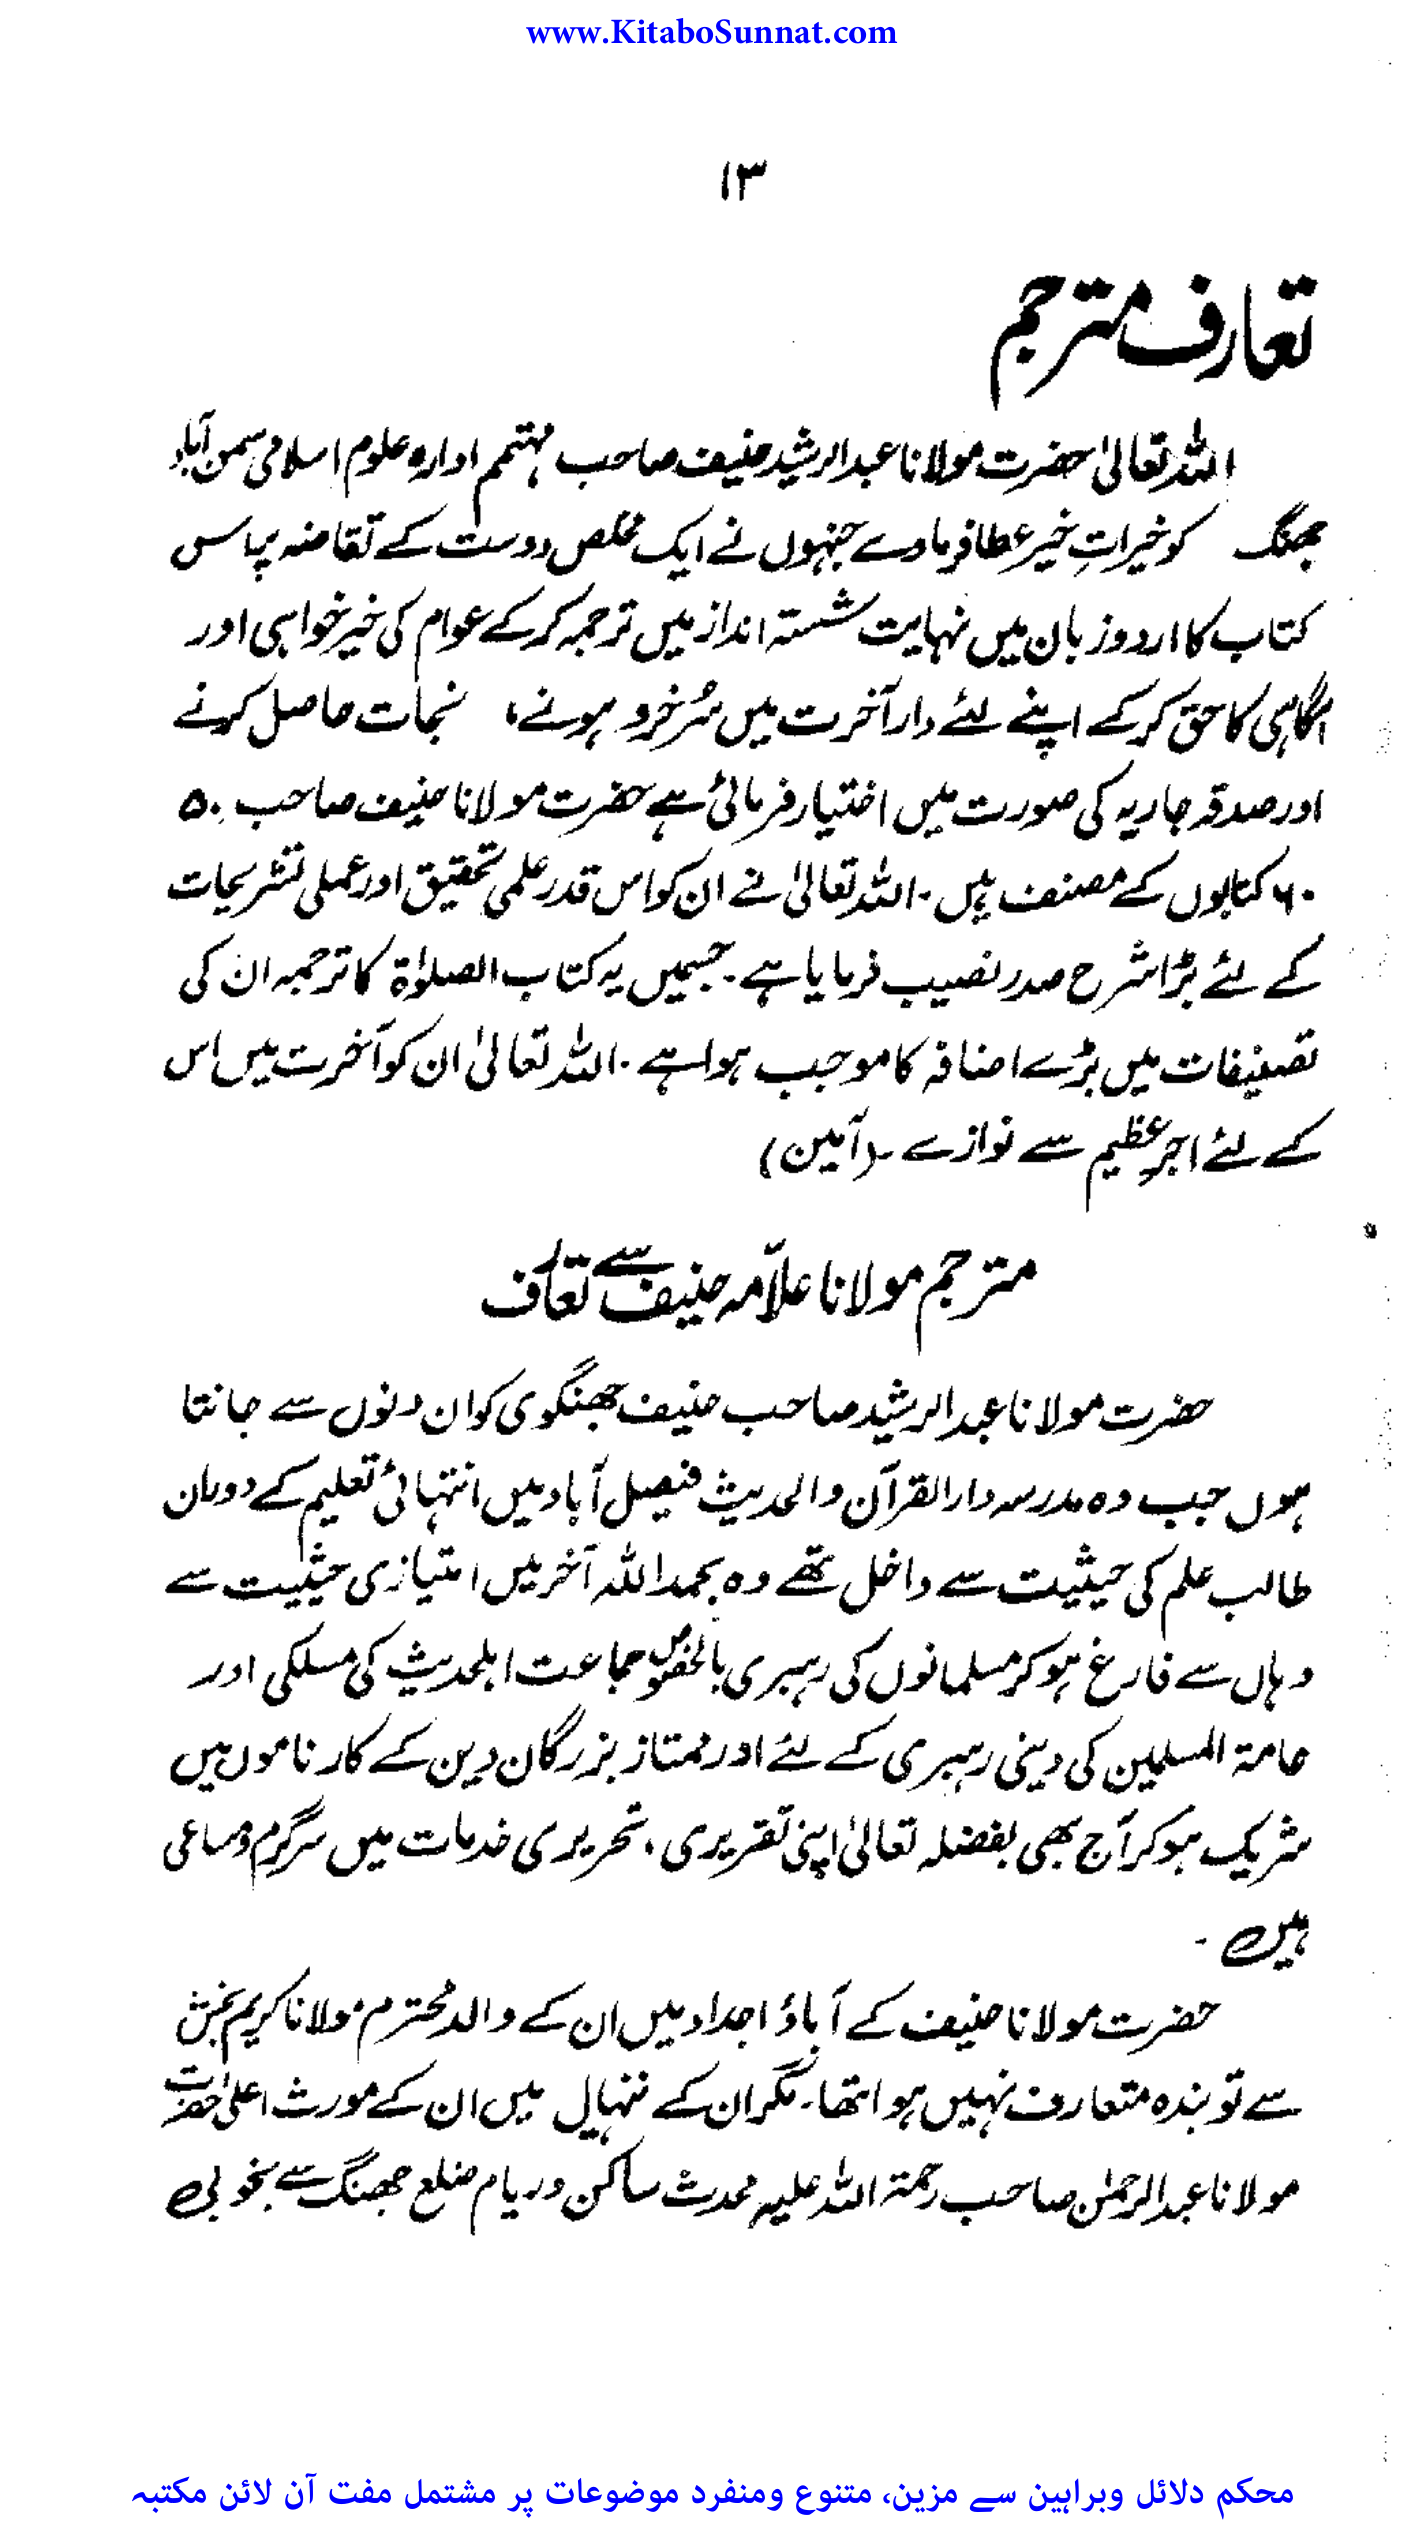 www.KitaboSunnat.com
۱۳
تعارف مترجم
اللہ تعالیٰ حضرت مولانا عبدالرشید حنیف صاحب مہتمم ادارہ علوم اسلامی سمن آباد
جھنگ کو خیراتِ خیر عطا فرمادے جنہوں نے ایک مخلص دوست کے تقاضہ پہ اس
کتاب کا اردو زبان میں نہایت شستہ انداز میں ترجمہ کر کے عوام کی خیر خواہی اور
آگاہی کا حق کر کے اپنے لئے دار آخرت میں سُرخرو ہونے، نجات حاصل کرنے
اور صدقہ جاریہ کی صورت میں اختیار فرمائی ہے حضرت مولانا حنیف صاحب ۵۰
۶۰ کتابوں کے مصنف ہیں۔ اللہ تعالیٰ نے ان کو اس قدر علمی تحقیق اور عملی تشریحات
کے لئے بڑا شرح صدر نصیب فرمایا ہے۔ جسمیں یہ کتاب الصلوٰۃ کا ترجمہ ان کی
تصنیفات میں بڑے اضافہ کا موجب ہوا ہے۔ اللہ تعالیٰ ان کو آخرت میں اس
کے لئے اجرِ عظیم سے نوازے۔ (آمین)
مترجم مولانا علاّمہ حنیف سے تعارف
حضرت مولانا عبدالرشید صاحب حنیف جھنگوی کو ان دنوں سے جانتا
ہوں جب وہ مدرسہ دارالقرآن والحدیث فیصل آباد میں انتہائی تعلیم کے دوران
طالب علم کی حیثیت سے داخل تھے وہ بحمداللہ آخر میں امتیازی حیثیت سے
وہاں سے فارغ ہو کر مسلمانوں کی رہبری بالخصوص جماعت اہلحدیث کی مسلکی اور
عامۃ المسلمین کی دینی رہبری کے لئے اور ممتاز بزرگان دین کے کارناموں میں
شریک ہو کر آج بھی بفضلہ تعالیٰ اپنی تقریری، تحریری خدمات میں سرگرم و ساعی
ہیں۔
حضرت مولانا حنیف کے آباؤ اجداد میں ان کے والد محترم مولانا کریم بخش
سے تو بندہ متعارف نہیں ہوا تھا۔ مگر ان کے ننہال میں ان کے مورث اعلیٰ حضرت
مولانا عبدالرحمٰن صاحب رحمۃ اللہ علیہ محدث ساکن وریام ضلع جھنگ سے بخوبی
محکم دلائل وبراہین سے مزین، متنوع ومنفرد موضوعات پر مشتمل مفت آن لائن مکتبہ